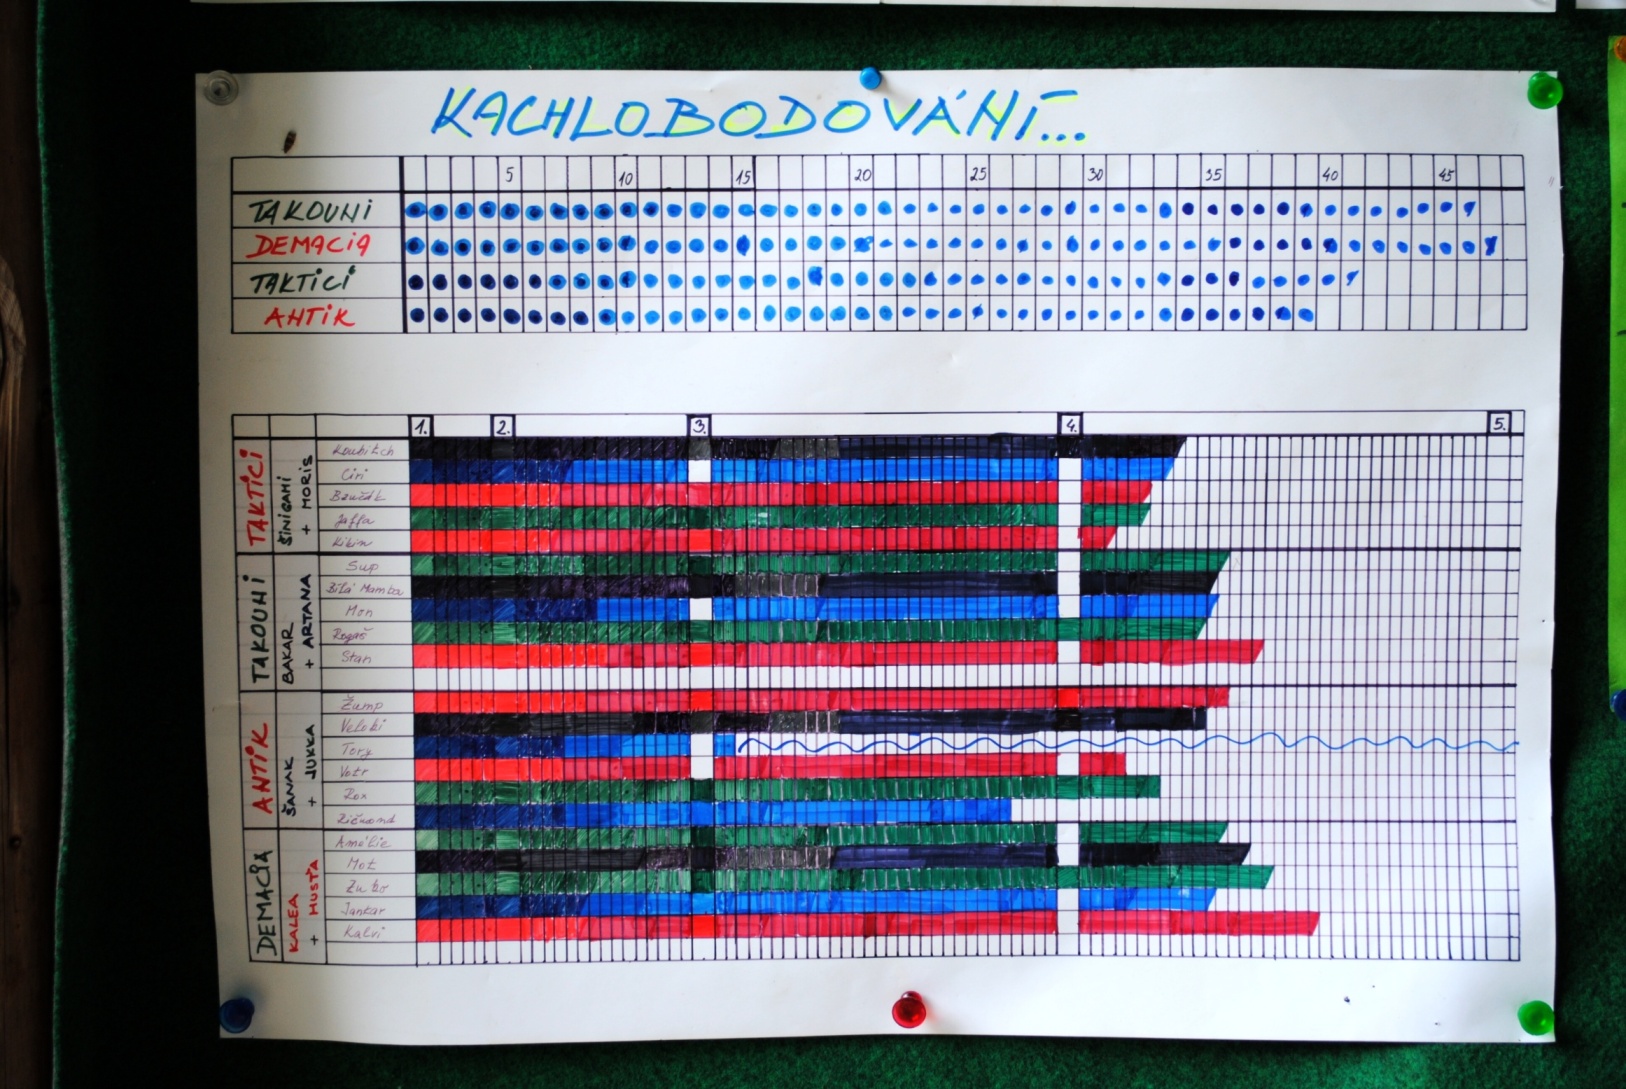 KACHLOBODOVÁNÍ...
5 10 15 20 25 30 35 40 45
TAKOUNI
DEMACIA
TAKTICI
ANTIK
1. 2. 3. 4. 5.
TAKTICI
ŠINIGAMI
+ MORIS
Ciri
Jaffa
Kikin
TAKOUNI
BAKAR
+ ARTANA
Sup
Bílá Mamba
Mon
Stan
ANTIK
ŠANAK
+ JUKKA
Žump
Tory
Votr
Rox
DEMACIA
KALEA
+ HUSTA
Amélie
Mot
Zubo
Jankar
Kalvi